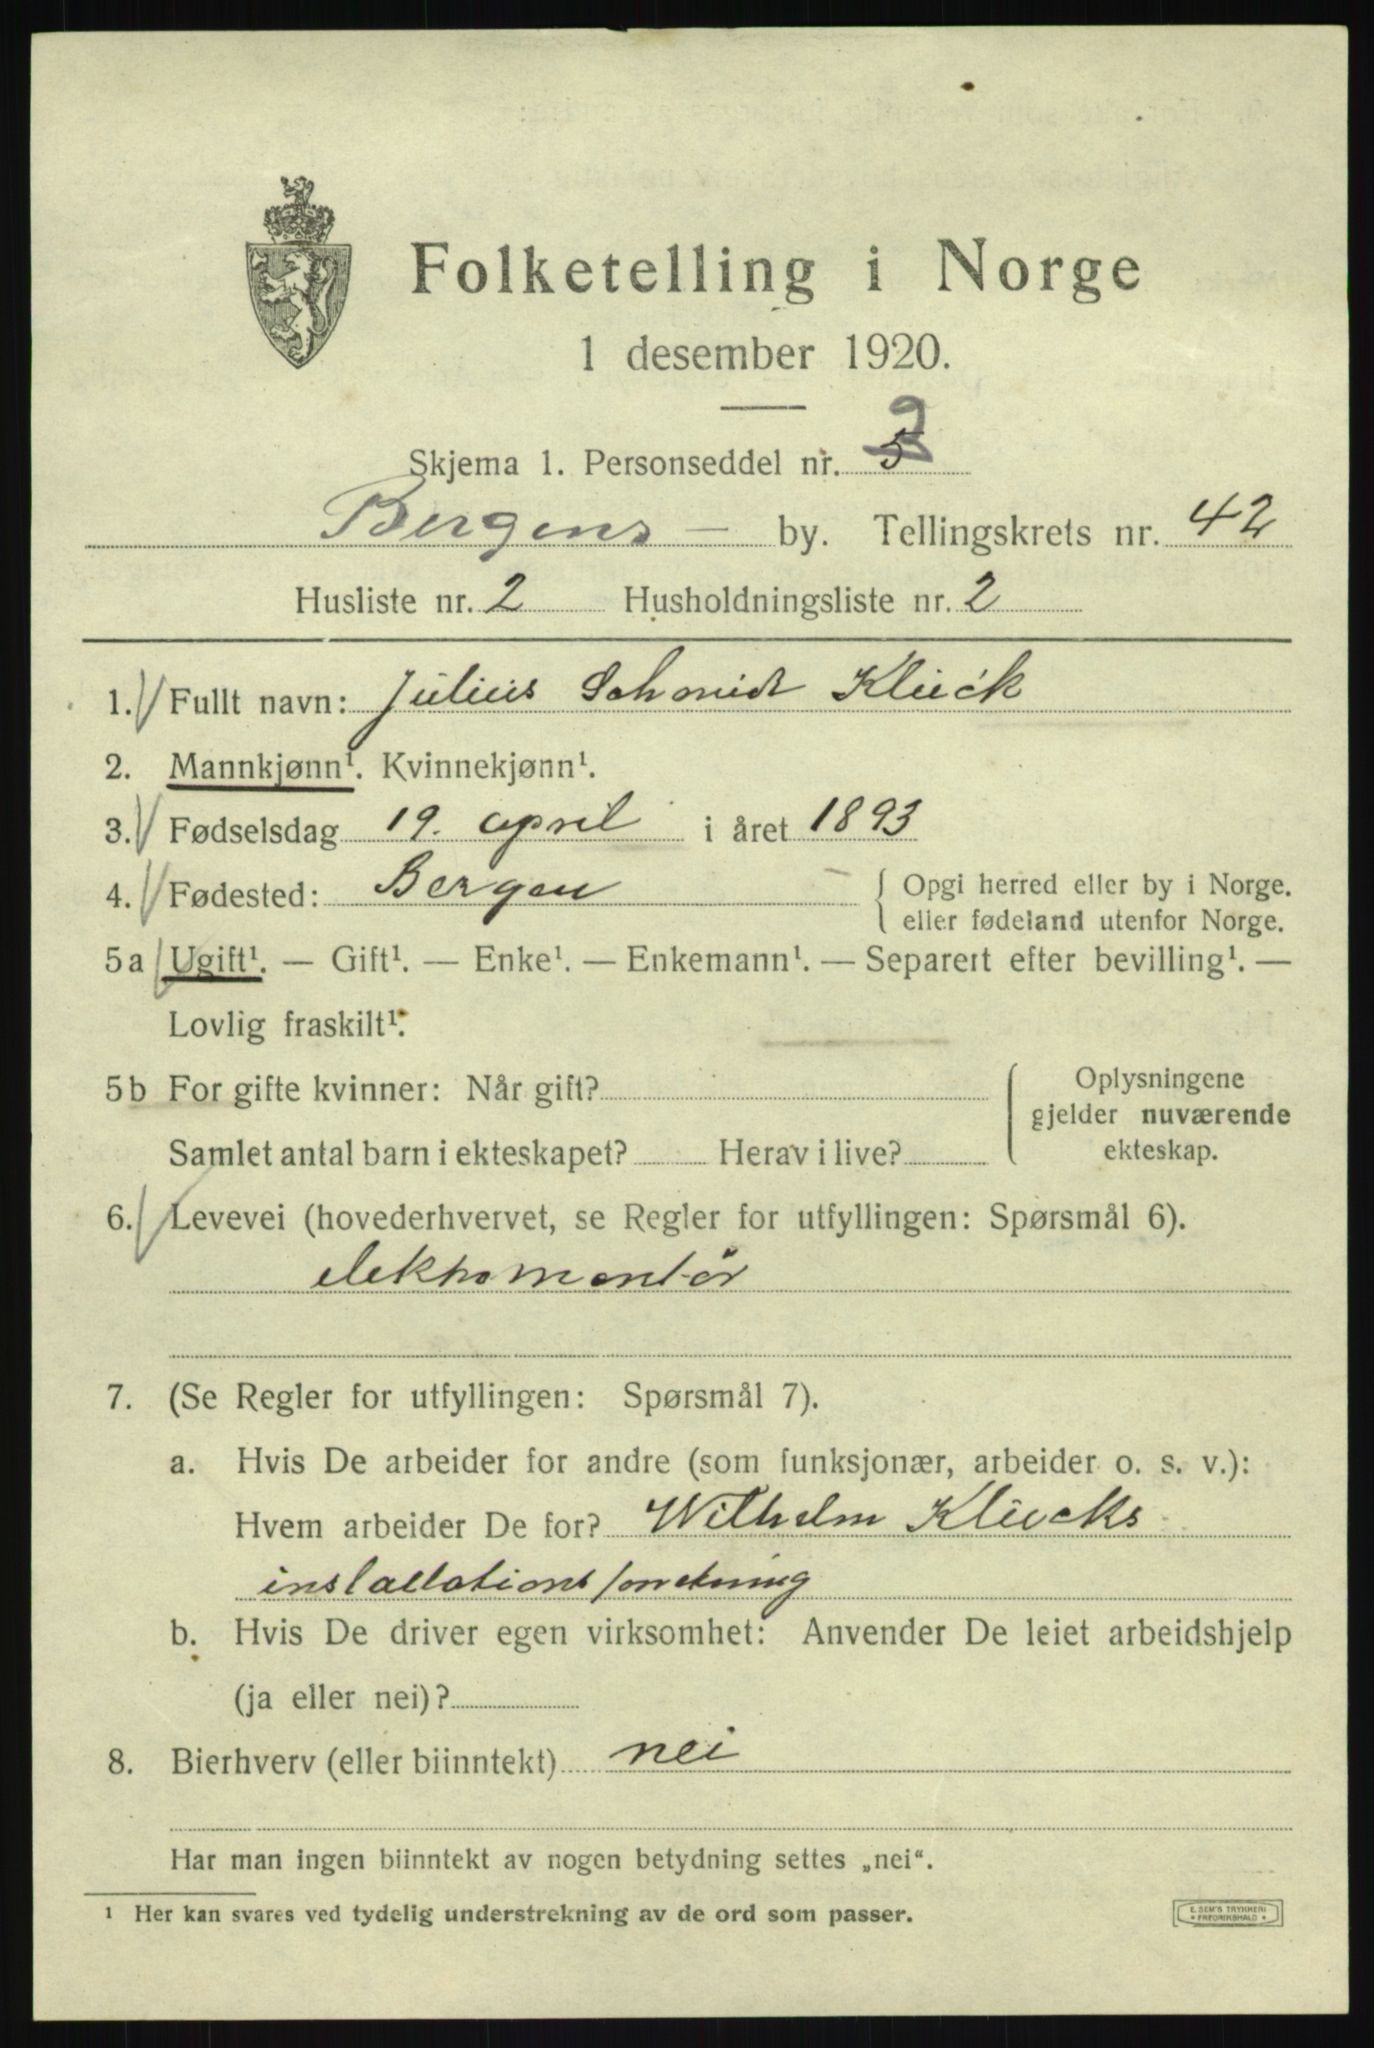 Folketelling i Norge
1 desember 1920.
Skjema 1. Personseddel nr. 2
Bergens — by. Tellingskrets nr. 42
Husliste nr. 2 Husholdningsliste nr. 2
1. Fullt navn: Julius Schmidt Klück
2. Mannkjønn¹. Kvinnekjønn¹.
3. Fødselsdag 19. april i året 1893
4. Fødested: Bergen { Opgi herred eller by i Norge.
eller fødeland utenfor Norge.
5a Ugift¹. — Gift¹. — Enke¹. — Enkemann¹. — Separert efter bevilling¹. —
Lovlig fraskilt¹.
5b For gifte kvinner: Når gift?
Samlet antal barn i ekteskapet? Herav i live?
Oplysningene
gjelder nuværende
ekteskap.
6. Levevei (hovederhvervet, se Regler for utfyllingen: Spørsmål 6).
elektromontör
7. (Se Regler for utfyllingen: Spørsmål 7).
a. Hvis De arbeider for andre (som funksjonær, arbeider o. s. v.):
Hvem arbeider De for? Wilhelm Klücks
installationsforretning
b. Hvis De driver egen virksomhet: Anvender De leiet arbeidshjelp
(ja eller nei)?
8. Bierhverv (eller biinntekt) nei
Har man ingen biinntekt av nogen betydning settes „nei“.
¹ Her kan svares ved tydelig understrekning av de ord som passer.
E. SEM'S TRYKKERI
• FREDRIKSHALD •